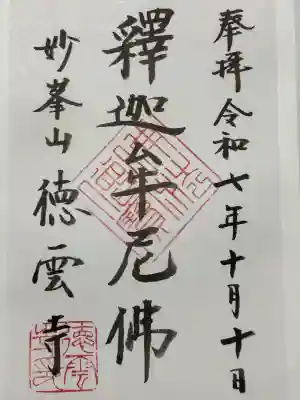 奉拝令和七年十月十日
釋迦牟尼佛
妙峯山徳雲寺